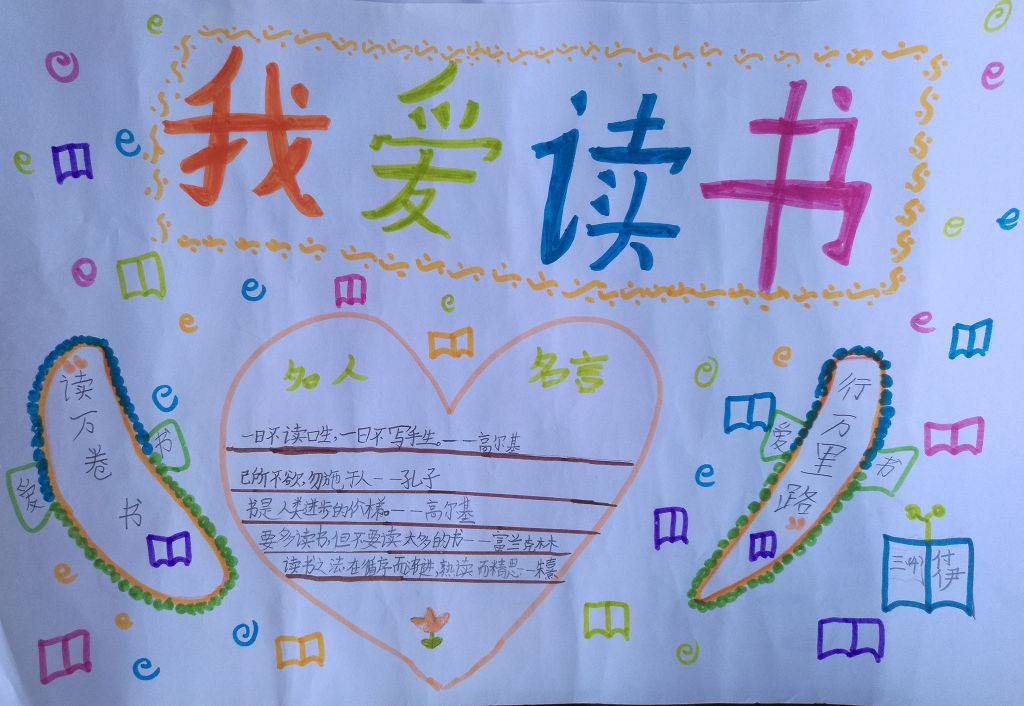 我爱读书
名人 名言
一日不读口生,一日不写手生。——高尔基
己所不欲,勿施于人——孔子
书是人类进步的价梯。——高尔基
要多读书,但不要读太多的书——富兰克林
读书之法,在循序而渐进,熟读而精思。—朱熹
读万卷书
爱
书
行万里路
爱
书
三(4)
付伊